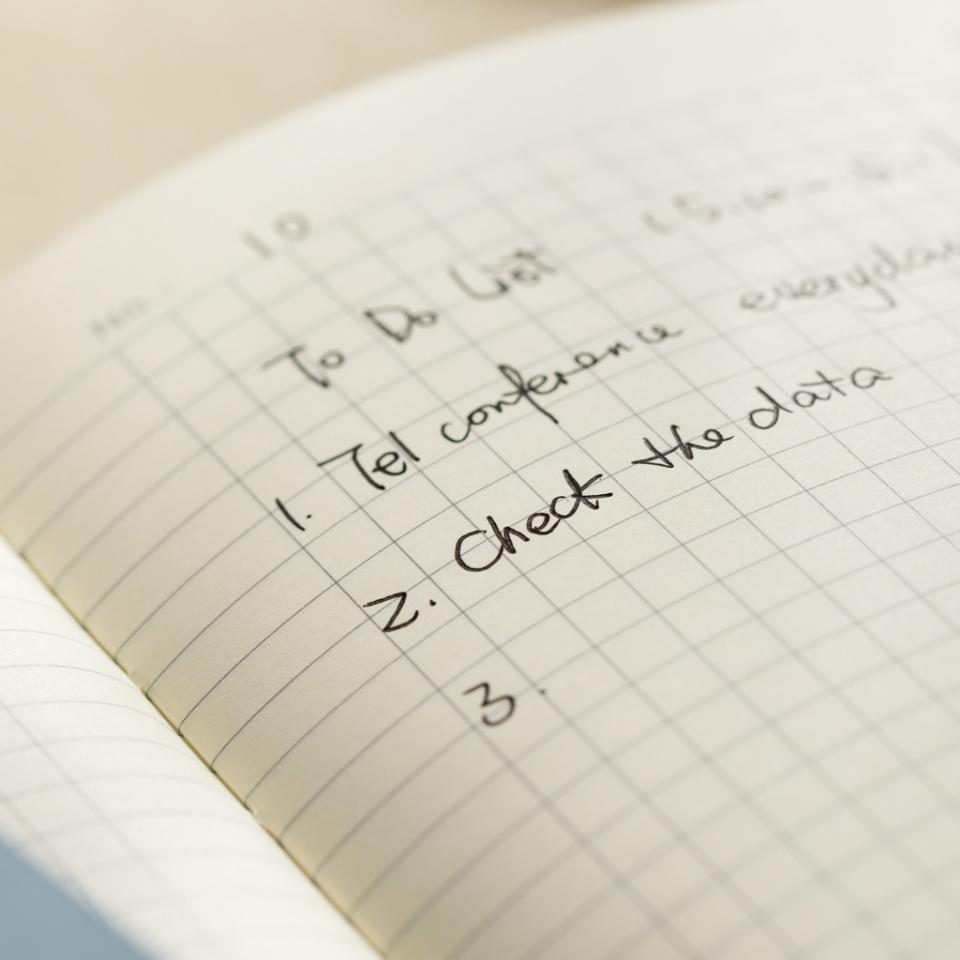 10
To Do List
1. Tel conference
2. Check the data
3.